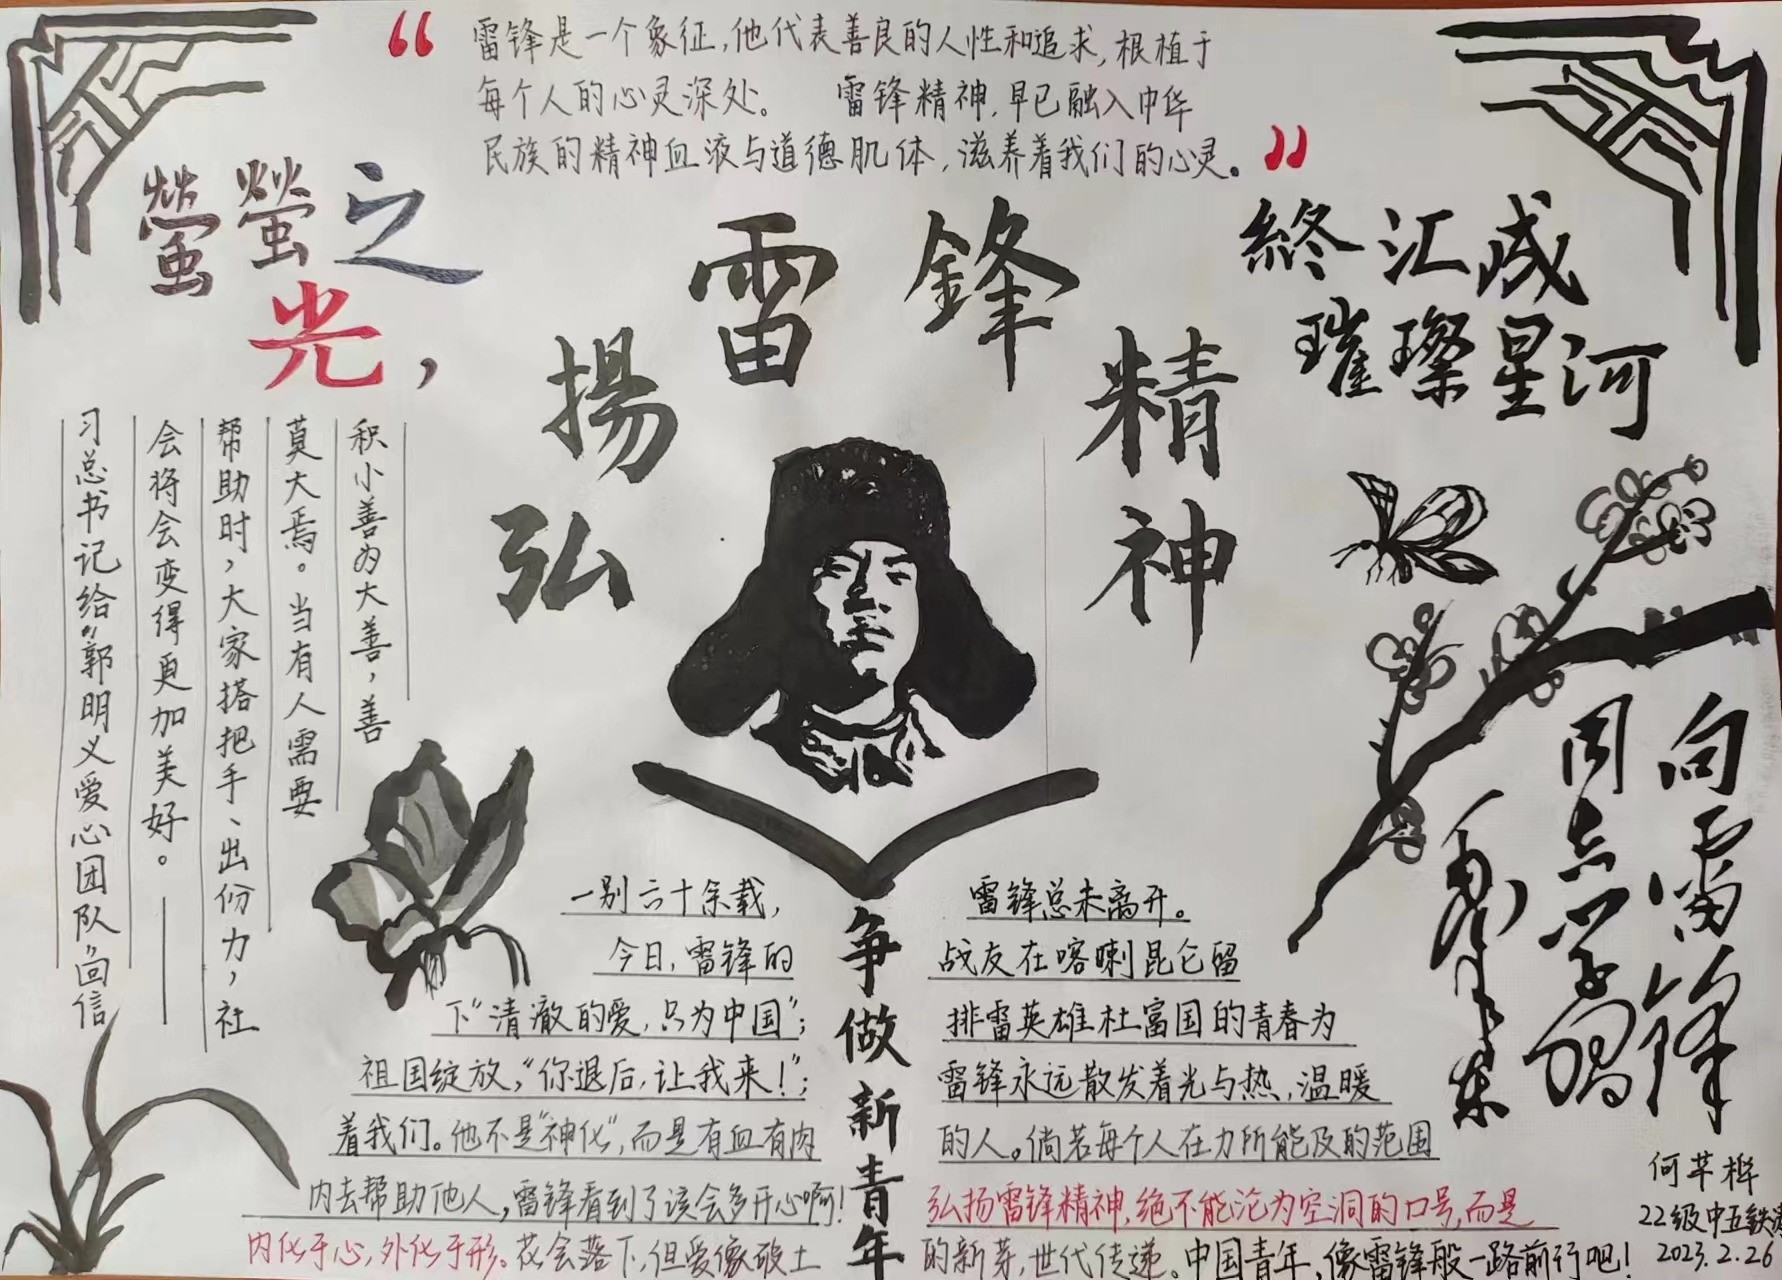 “雷锋是一个象征,他代表善良的人性和追求,根植于
每个人的心灵深处。 雷锋精神,早已融入中华
民族的精神血液与道德肌体,滋养着我们的心灵。”
螢螢之
光,
弘揚雷鋒精神
終汇成
璀璨星河
积小善为大善,善
莫大焉。当有人需要
帮助时,大家搭把手、出份力,社
会将会变得更加美好。——
习总书记给“郭明义爱心团队”回信
向雷锋
同志学习
毛泽东
争做新青年
一别六十余载, 雷锋总未离开。
今日,雷锋的 战友在喀喇昆仑留
下“清澈的爱,只为中国”; 排雷英雄杜富国的青春为
祖国绽放,“你退后,让我来!”; 雷锋永远散发着光与热,温暖
着我们。他不是“神化”,而是有血有肉 的人。倘若每个人在力所能及的范围
内去帮助他人,雷锋看到了该会多开心啊! 弘扬雷锋精神,绝不能沦为空洞的口号,而是
内化于心,外化于形。花会落下,但爱像破土 的新芽,世代传递。中国青年,像雷锋般一路前行吧!
何芊桦
22级中五铁
2023.2.26